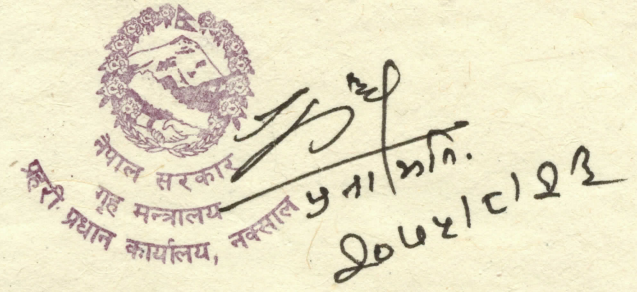 नेपाल सरकार
गृह मन्त्रालय
प्रहरी प्रधान कार्यालय, नक्साल
प्र ना अति.
२०७५।८।१३